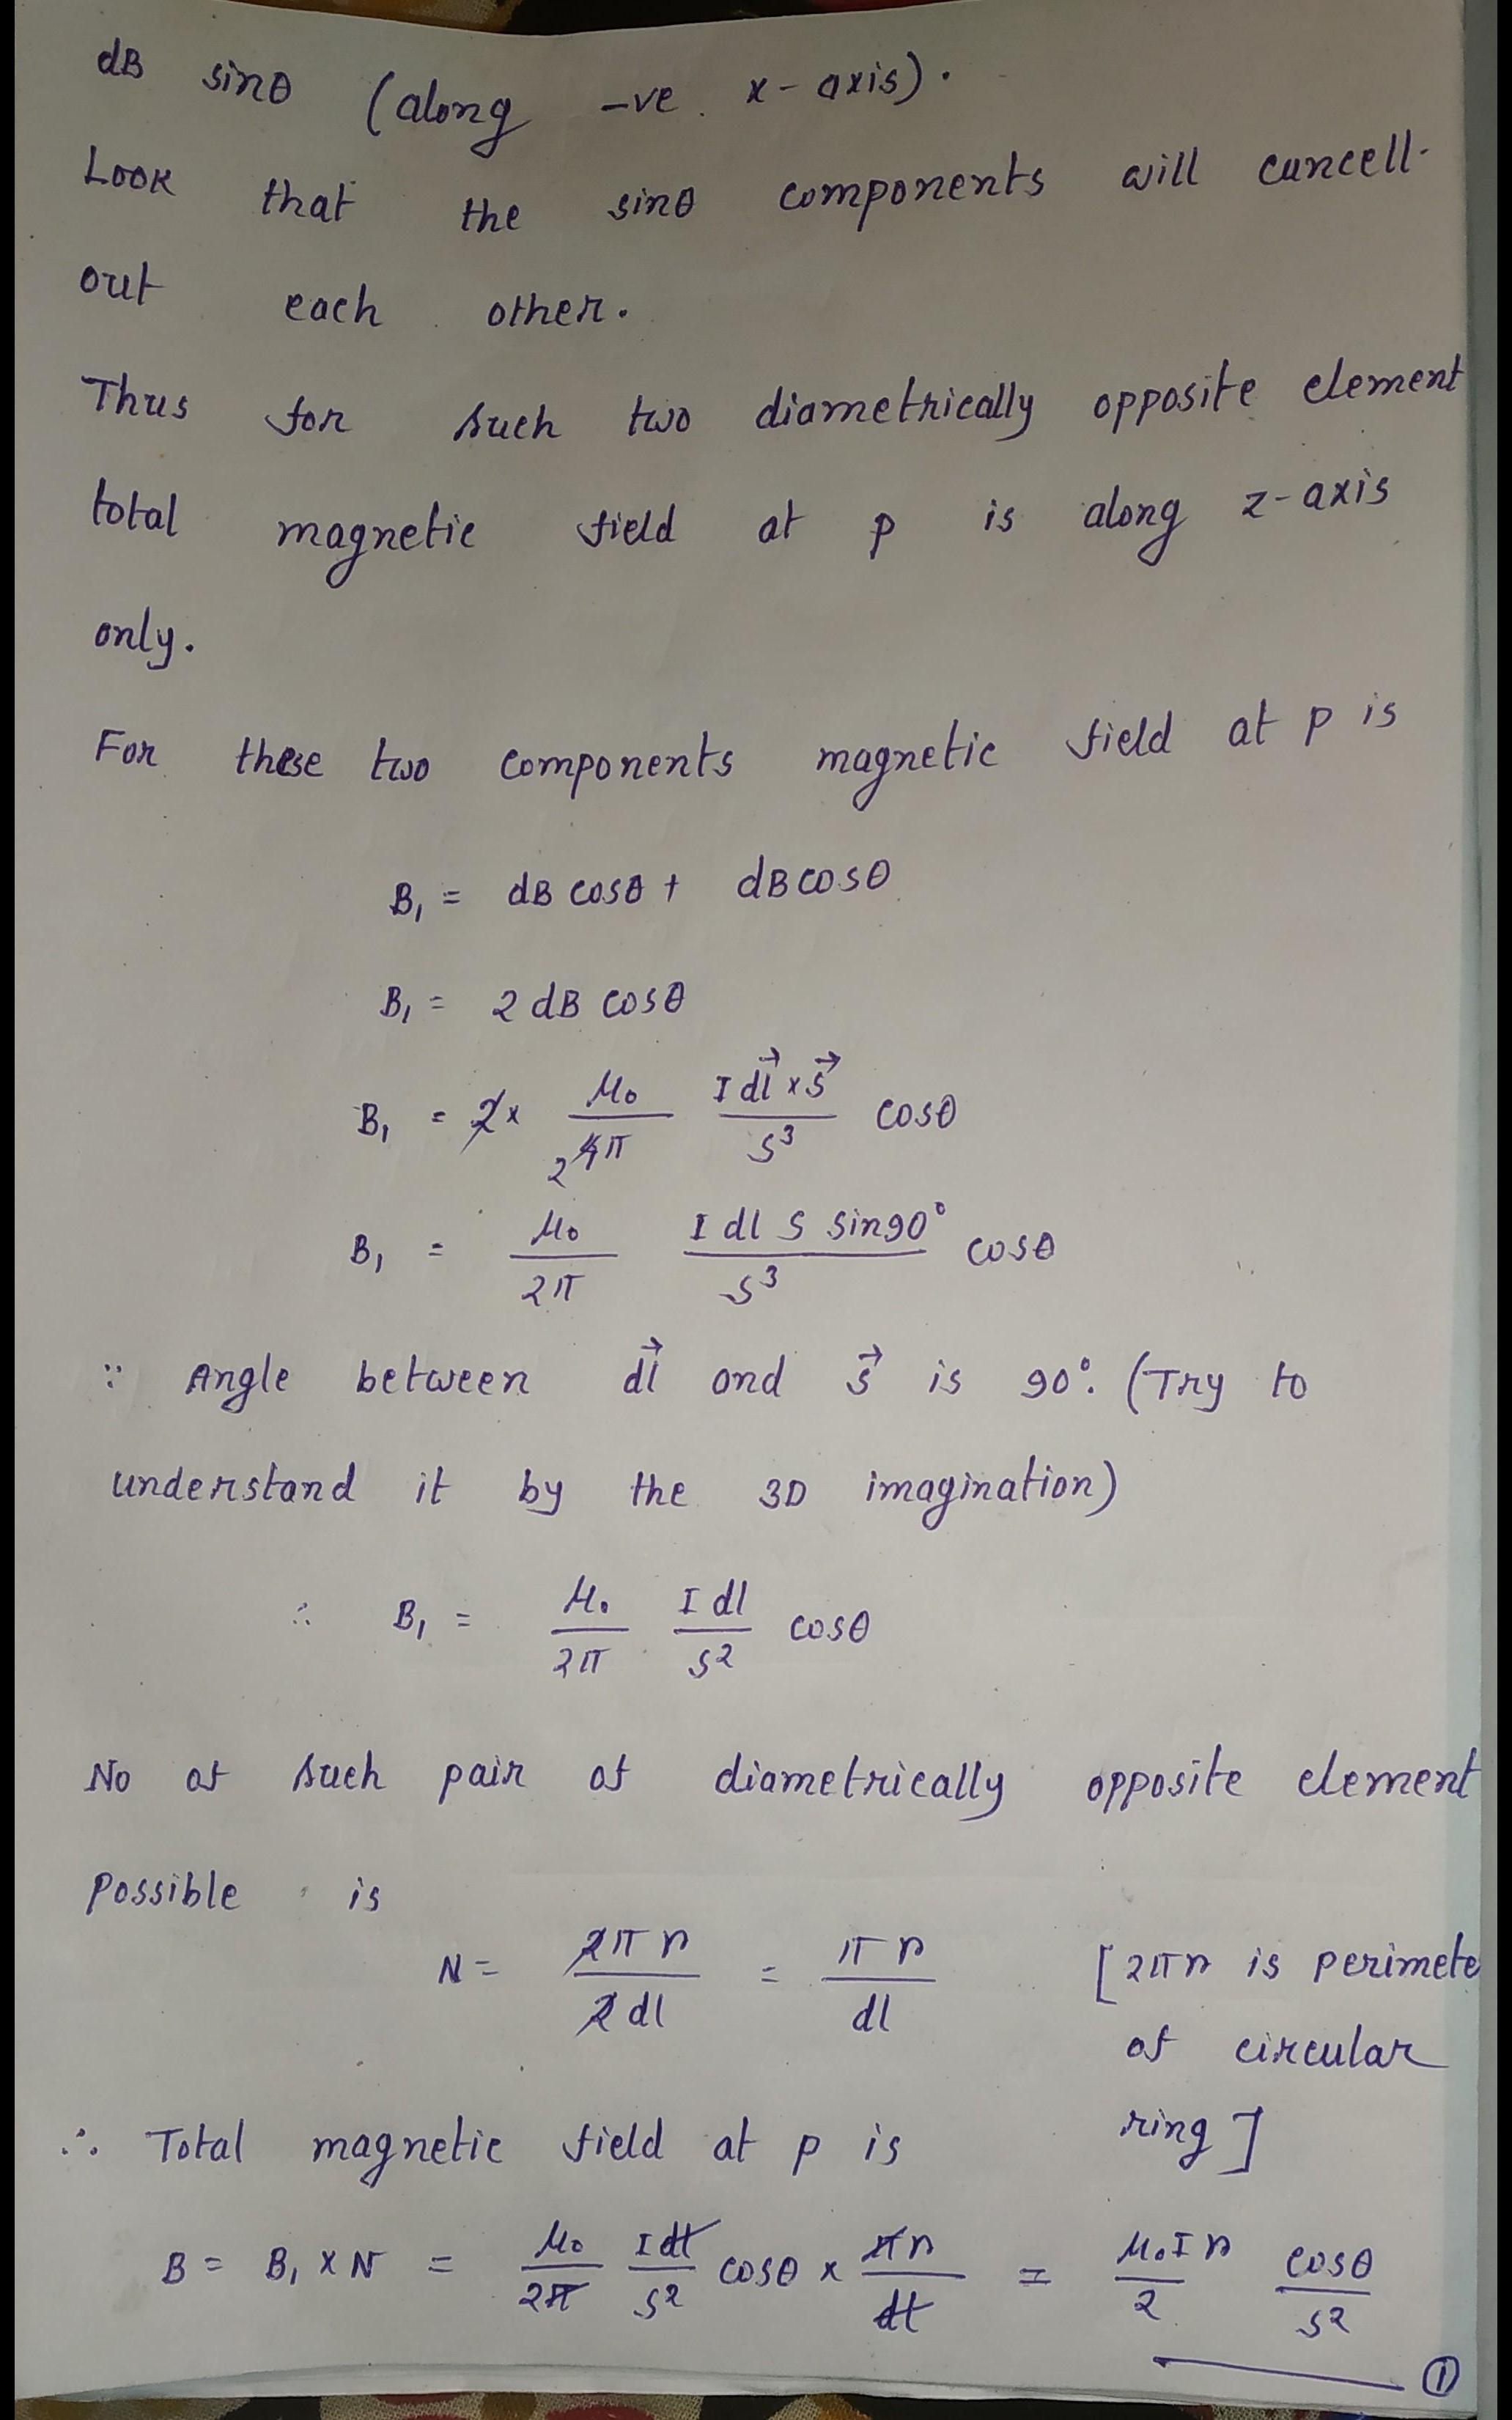 dB sinθ (along -ve x-axis).
Look that the sinθ components will cancell
out each other.
Thus for such two diametrically opposite element
total magnetic field at p is along z-axis
only.
For these two components magnetic field at p is
B₁ = dB cosθ + dB cosθ
B₁ = 2 dB cosθ
B₁ = 2 × μ₀/4π I dl⃗ × s⃗ / s³ cosθ
2
B₁ = μ₀/2π I dl s sin90° / s³ cosθ
∵ Angle between dl⃗ and s⃗ is 90°. (Try to
understand it by the 3D imagination)
∴ B₁ = μ₀/2π I dl/s² cosθ
No of such pair of diametrically opposite element
possible is
N = 2πr/2dl = πr/dl [2πr is perimete
of circular
ring]
∴ Total magnetic field at p is
B = B₁ × N = μ₀/2π I dl/s² cosθ × πr/dl = μ₀Ir/2 cosθ/s²
①